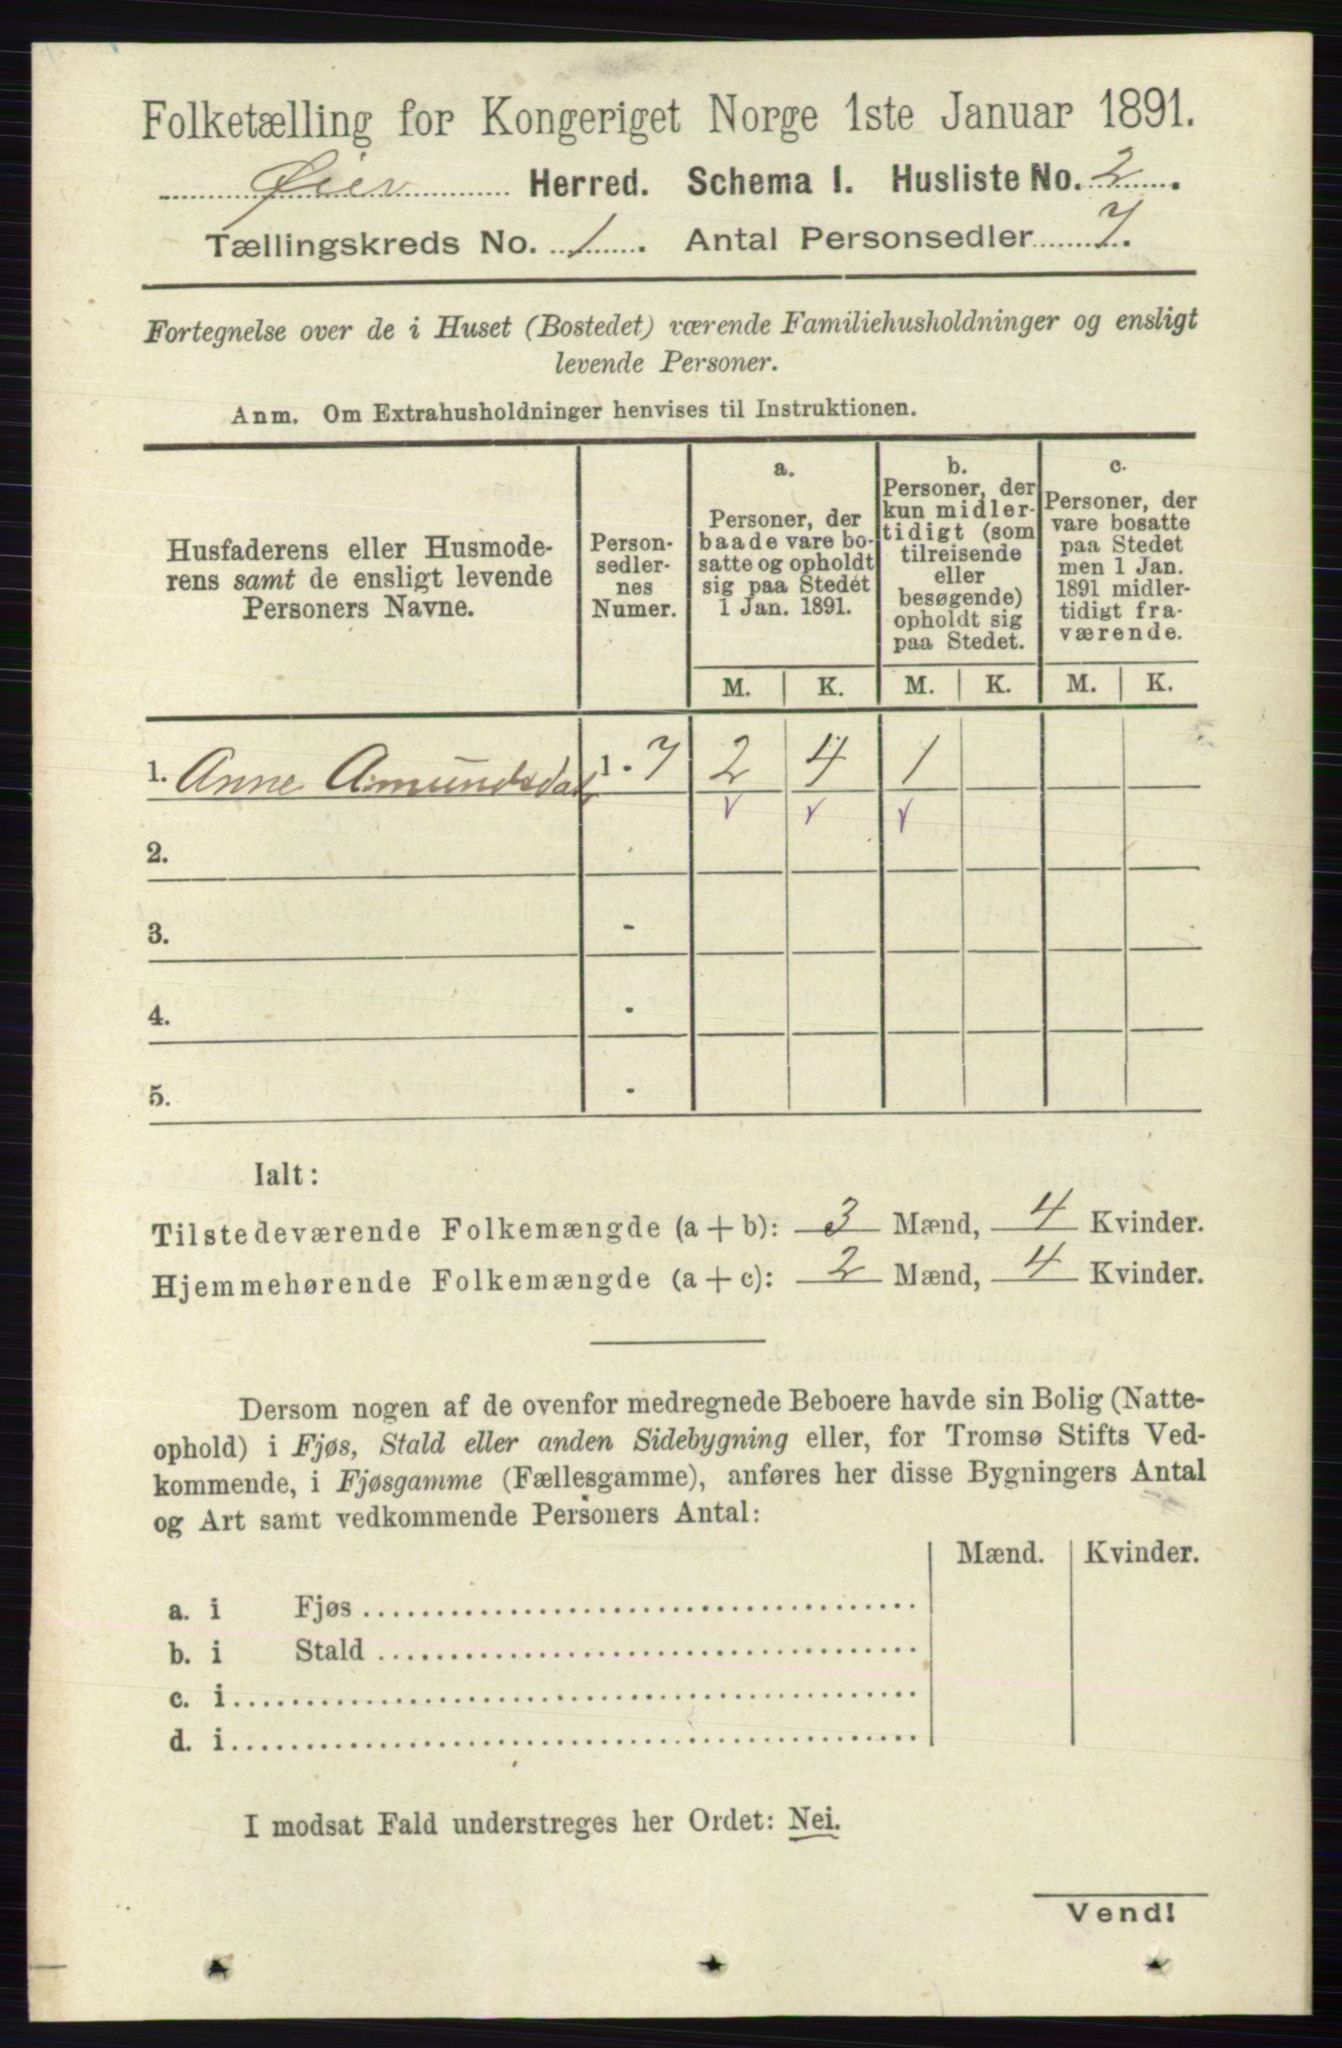 Folketælling for Kongeriget Norge 1ste Januar 1891.
Øier Herred. Schema I. Husliste No. 2.
Tællingskreds No. 1. Antal Personsedler 7.
Fortegnelse over de i Huset (Bostedet) værende Familiehusholdninger og ensligt
levende Personer.
Anm. Om Extrahusholdninger henvises til Instruktionen.
Husfaderens eller Husmode-
rens samt de ensligt levende
Personers Navne.
Person-
sedler-
nes
Numer.
a.
Personer, der
baade vare bo-
satte og opholdt
sig paa Stedet
1 Jan. 1891.
b.
Personer, der
kun midler-
tidigt (som
tilreisende
eller
besøgende)
opholdt sig
paa Stedet.
c.
Personer, der
vare bosatte
paa Stedet
men 1 Jan.
1891 midler-
tidigt fra-
værende.
M. K. M. K. M. K.
1. Anne Amundsdatr 1 - 7 2 4 1
2.
3. -
4. -
5. -
Ialt:
Tilstedeværende Folkemængde (a + b): 3 Mænd, 4 Kvinder.
Hjemmehørende Folkemængde (a + c): 2 Mænd, 4 Kvinder.
Dersom nogen af de ovenfor medregnede Beboere havde sin Bolig (Natte-
ophold) i Fjøs, Stald eller anden Sidebygning eller, for Tromsø Stifts Ved-
kommende, i Fjøsgamme (Fællesgamme), anføres her disse Bygningers Antal
og Art samt vedkommende Personers Antal:
Mænd. Kvinder.
a. i Fjøs
b. i Stald
c. i
d. i
I modsat Fald understreges her Ordet: Nei.
Vend!